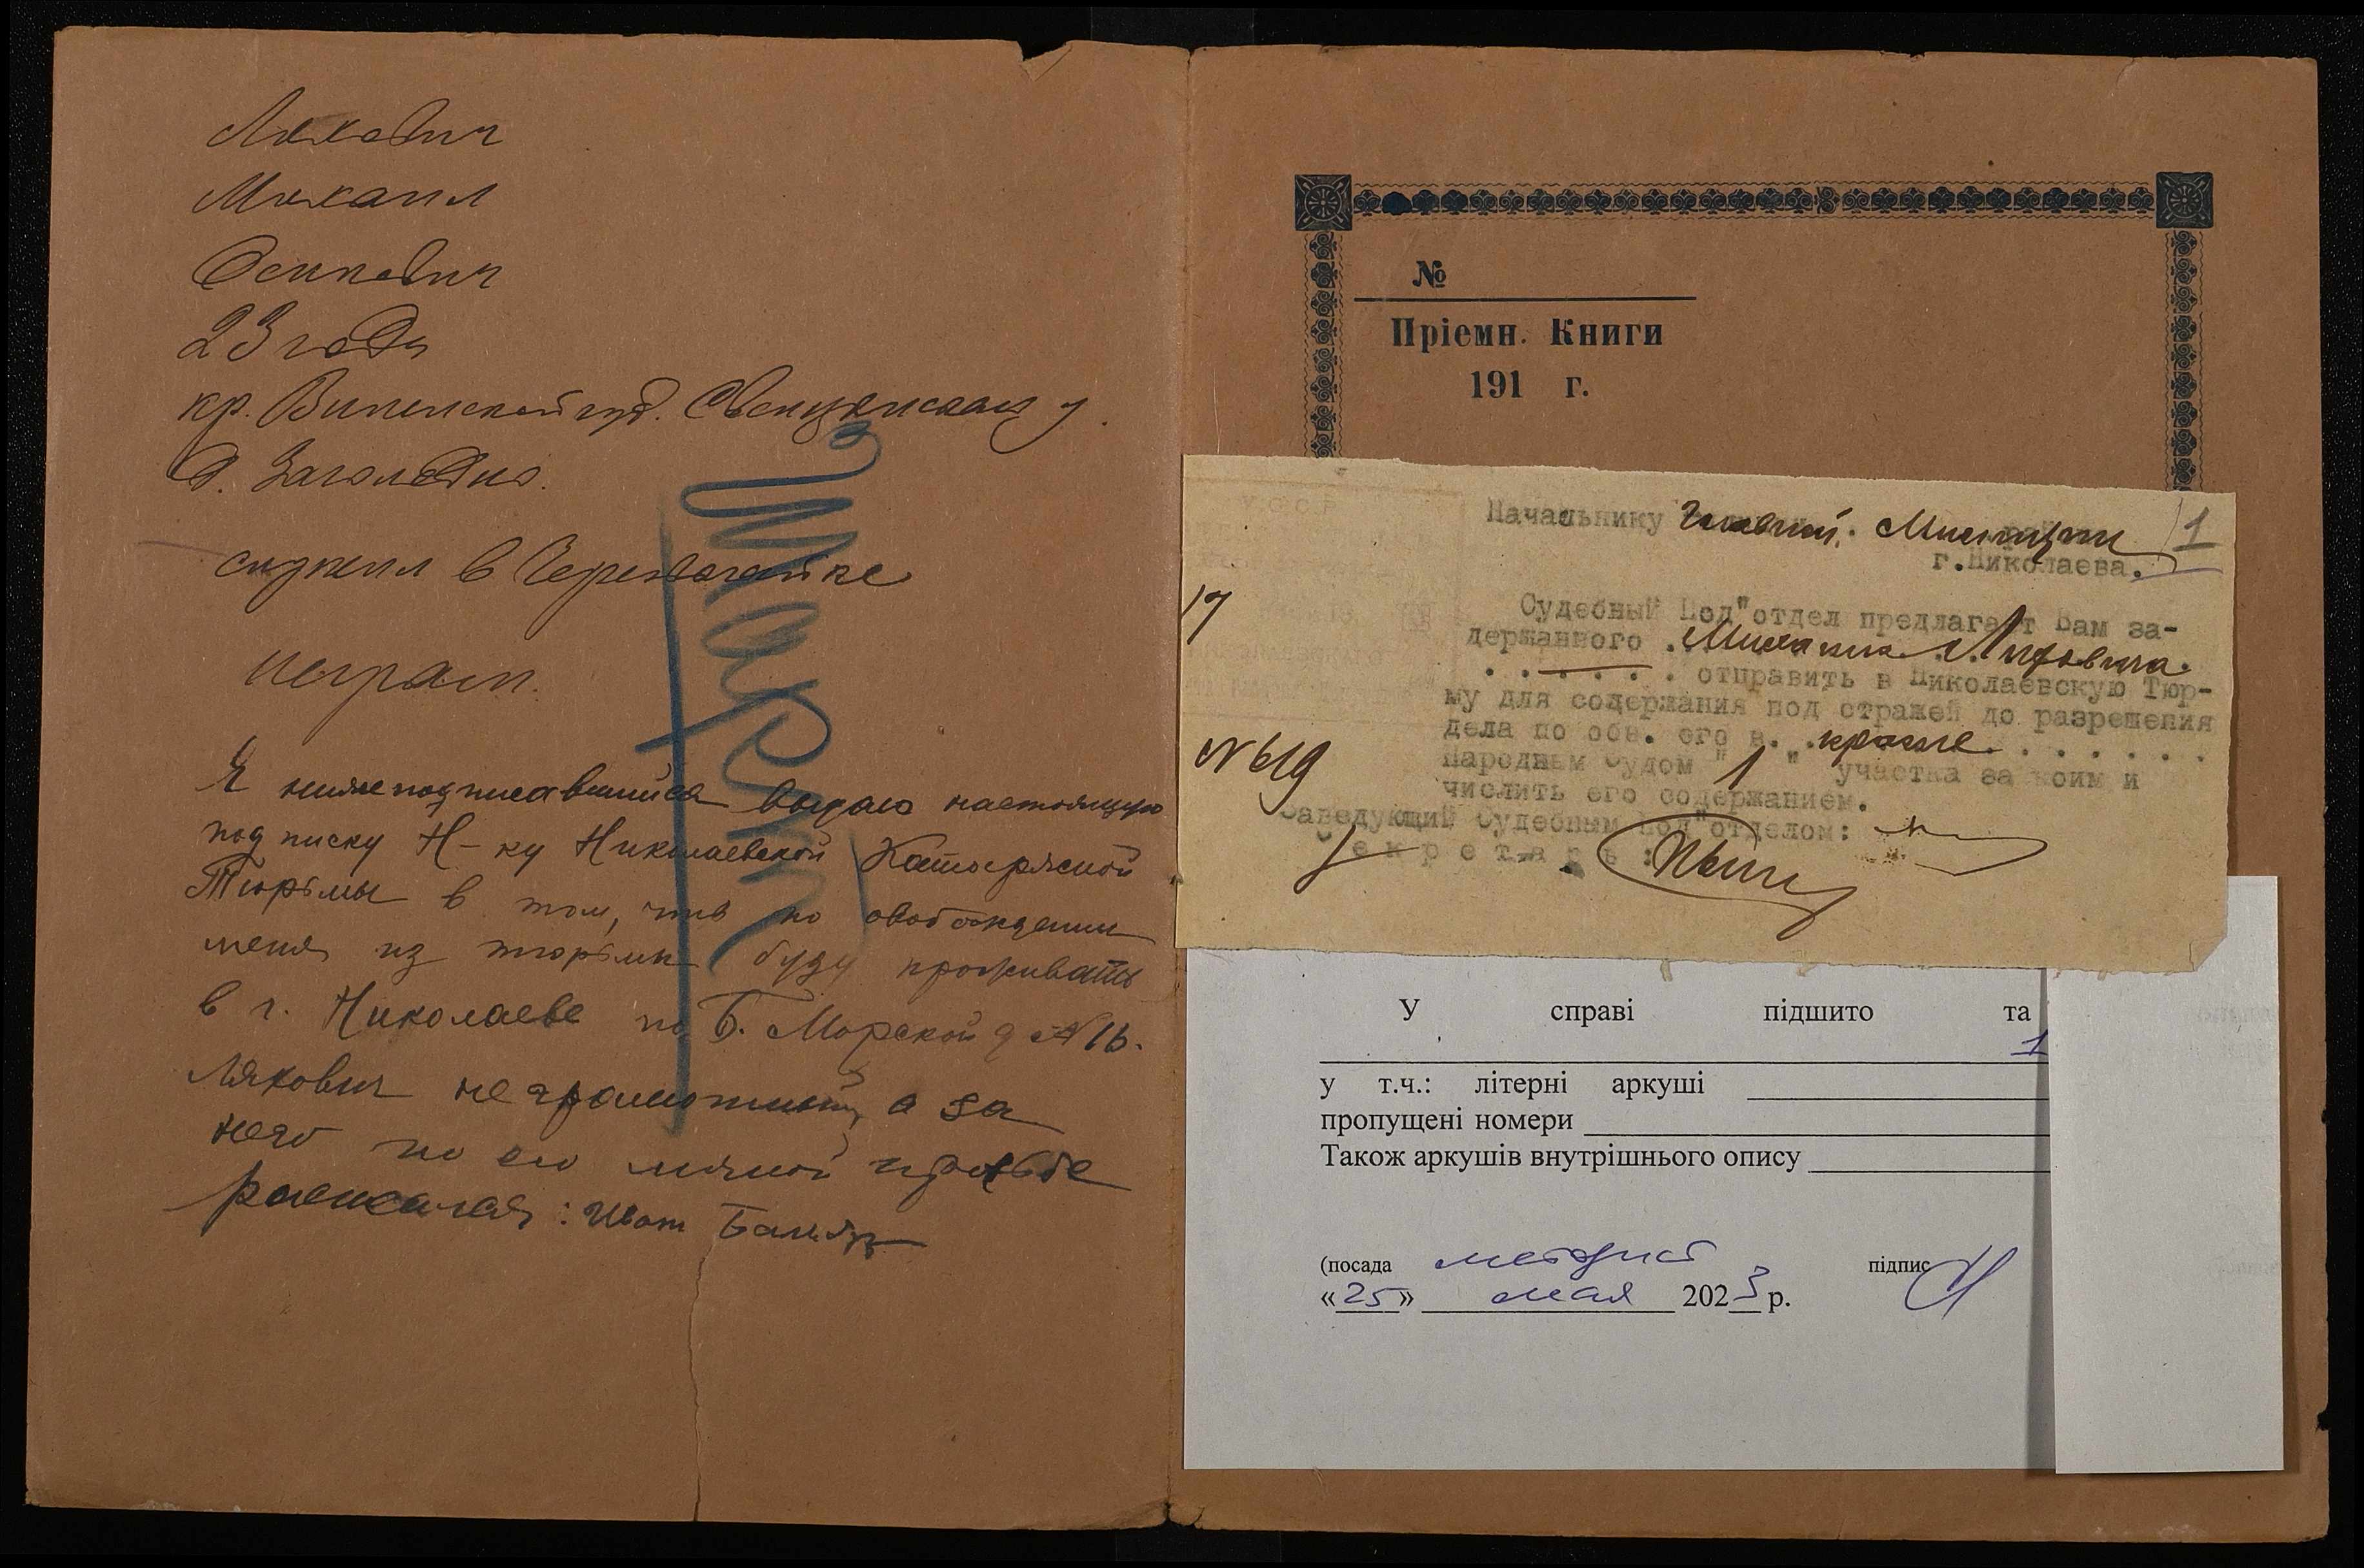 Ляхович
Михаил
Осипович
23 года
кр. Виленской губ. Свенцянского у.
д.
служил в
неграм.
Я нижеподписавшийся выдаю настоящую
подписку Н-ку Николаевской Каторжной
Тюрьмы в том, что по освобождении
меня из тюрьмы буду проживать
в г. Николаеве по Б. Морской д № 16.
Ляхович неграмотный, а за
него по его личной прозьбе
росписался: Иван
№
Пріемн. Книги
191 г.
Начальнику Милиции 1
г.Николаева.
17
Судебный Под"отдел предлагает Вам за-
держанного . Михаила
. . . . . . отправить в Николаевскую Тюрь-
му для содержания под стражей до разрешения
дела по обв. его в. . краже. . . . . . .
Народным Судом " 1 " участка за коим и
числить его содержанием.
№ 619
Заведующий Судебным Под"отделом:
Секретарь:
У справі підшито та
1
у т.ч.: літерні аркуші
пропущені номери
Також аркушів внутрішнього опису
(посада підпис
«25» мая 2023 р.